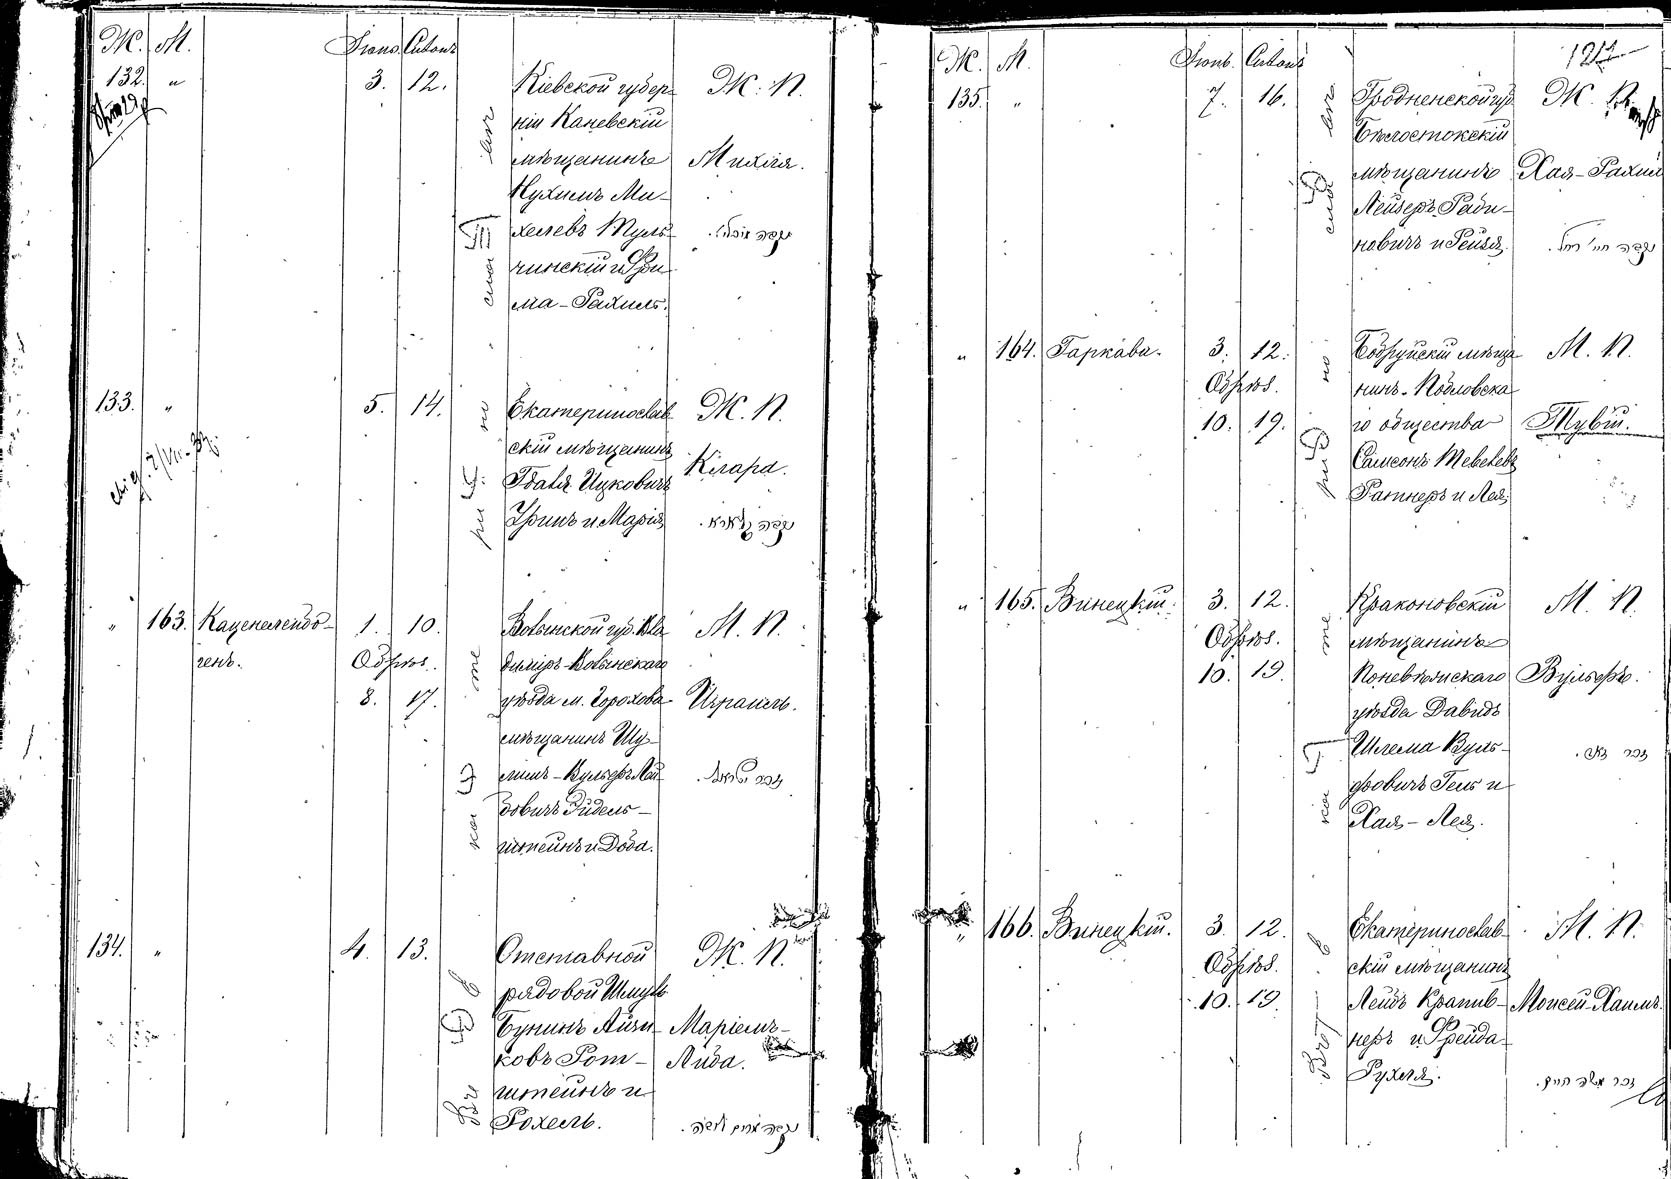 Ж. М. Іюнь. Сивонъ
132. " 3. 12. Кіевской губер-
ніи Каневскій
мѣщанинъ
Нухимъ Ми-
хелевъ Туль-
чинскій и Фри-
ма-Рахиль.
Ж. П.
Михля.
נקבה מיכליא.
133. " 5. 14. Екатеринослав-
скій мѣщанинъ
Ицковичъ
Уринъ и Марія
Ж. П.
Клара.
נקבה קלארא.
" 163. Каценеленбо-
генъ.
1. 10.
Обрѣз.
8. 17.
Волынской губ. Вла-
димір-Волынскаго
уѣзда м. Горохова
мѣщанинъ Шу-
лимъ-Вульфъ Лей-
бовичъ Эйдель-
штейнъ и Доба.
М. П.
Израиль.
זכר ישראל.
134. " 4. 13. Отставной
рядовой Шмуль
Бунинъ Айзи-
ковъ Рот-
штейнъ и
Рохель.
Ж. П.
Маріемъ-
Либа.
נקבה מרים ליבה.
Въ Одессѣ
Ж. М. Іюнь. Сивонъ
135. " 7. 16. Гродненской губ.
Бѣлостокскій
мѣщанинъ
Лейзеръ Раби-
новичъ и Рейзя.
Ж. П.
Хая-Рахиль
נקבה חיי' רחל.
" 164. Гаркави. 3. 12.
Обрѣз.
10. 19.
Бобруйскій мѣща-
нинъ
го общества
Самсонъ Тевелевъ
Ратнеръ и Лея.
М. П.
Тувій.
" 165. Винецкій. 3. 12.
Обрѣз.
10. 19.
Краконовскій
мѣщанинъ
Поневѣжскаго
уѣзда Давидъ
Шлема Вуль-
фовичъ Гель и
Хая-Лея.
М. П.
Вульфъ.
זכר זאב.
" 166. Винецкій. 3. 12.
Обрѣз.
10. 19.
Екатеринослав-
скій мѣщанинъ
Лейбъ Крапив-
неръ и Фрейда-
Рухля.
М. П.
Моисей-Хаимъ.
זכר משה חיים.